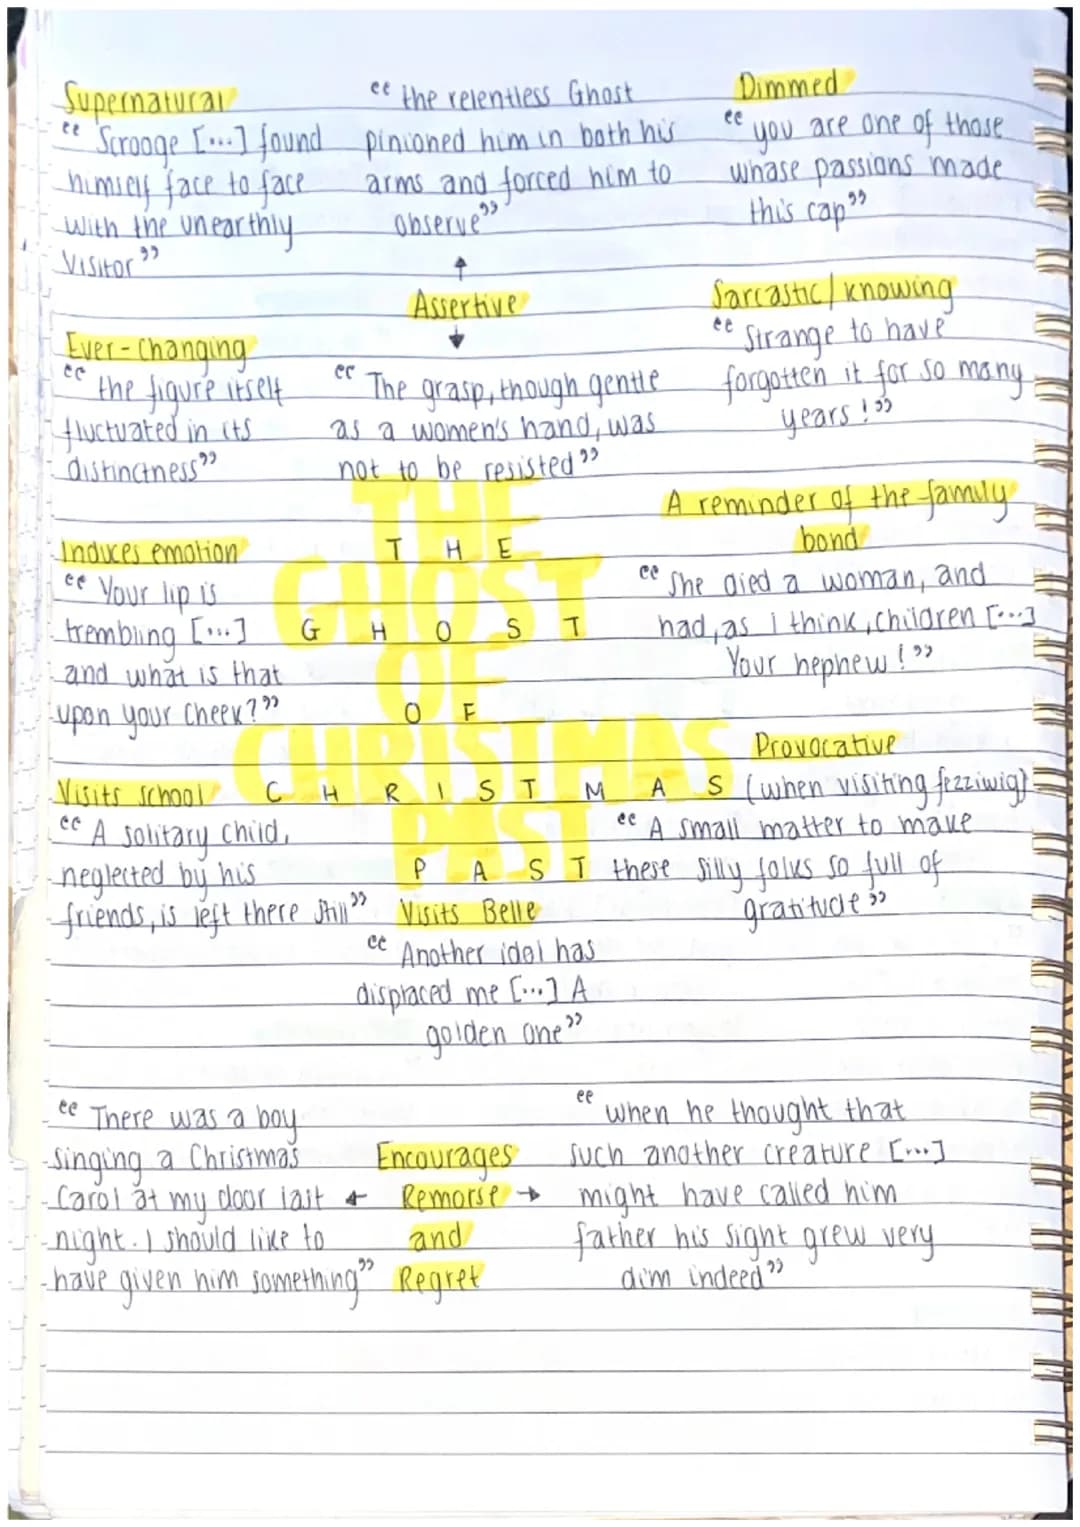 Supernatural
“ Scrooge [...] found
himself face to face
with the unearthly
visitor ”
“ the relentless Ghost
pinioned him in both his
arms and forced him to
observe ”
Dimmed
“ you are one of those
whose passions made
this cap ”
Assertive
“ The grasp, though gentle
as a women's hand, was
not to be resisted ”
Sarcastic / knowing
“ Strange to have
forgotten it for so many
years ! ”
Ever - changing
“ the figure itself
fluctuated in its
distinctness ”
A reminder of the family
bond
“ She died a woman, and
had, as I think, children [...]
Your nephew ! ”
Induces emotion
“ Your lip is
trembling [...]
and what is that
upon your cheek? ”
THE
GHOST
OF
CHRISTMAS
PAST
THE
GHOST
OF
CHRISTMAS
PAST
Provocative
(when visiting fezziwig)
“ A small matter to make
these silly folks so full of
gratitude ”
Visits school
“ A solitary child,
neglected by his
friends, is left there still ”
Visits Belle
“ Another idol has
displaced me [...] A
golden one ”
“ There was a boy
singing a Christmas
Carol at my door last
night. I should like to
have given him something ”
Encourages
Remorse
and
Regret
“ when he thought that
such another creature [...]
might have called him
father his sight grew very
dim indeed ”